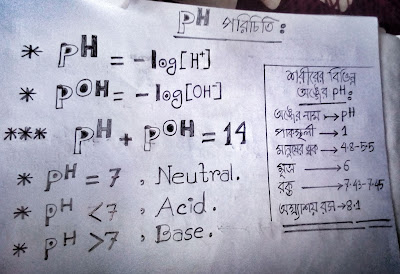 pH পরিচিতি :
* pH = -log[H⁺]
* pOH = -log[OH⁻]
*** pH + pOH = 14
* pH = 7 , Neutral.
* pH < 7 , Acid.
* pH > 7 , Base.
শরীরের বিভিন্ন
অঙ্গের pH :
অঙ্গের নাম → pH
পাকস্থলী → 1
মানুষের ত্বক → 4.8-5.5
মূত্র → 6
রক্ত → 7.43-7.45
অগ্ন্যাশয় রস → 8.1